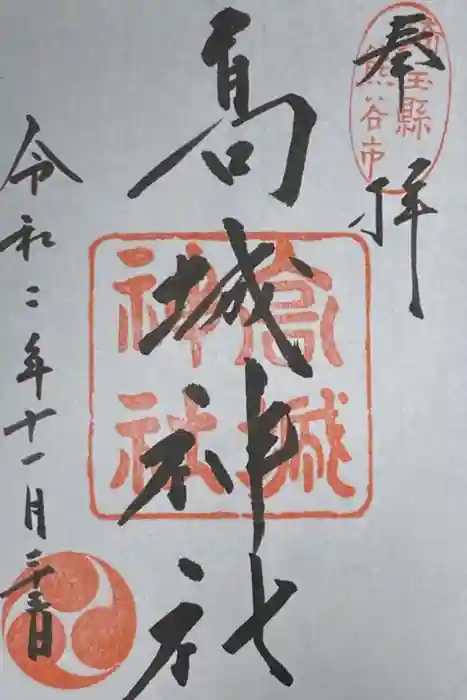 奉拝
埼玉縣
熊谷市
高城神社
高城
神社
令和二年十一月